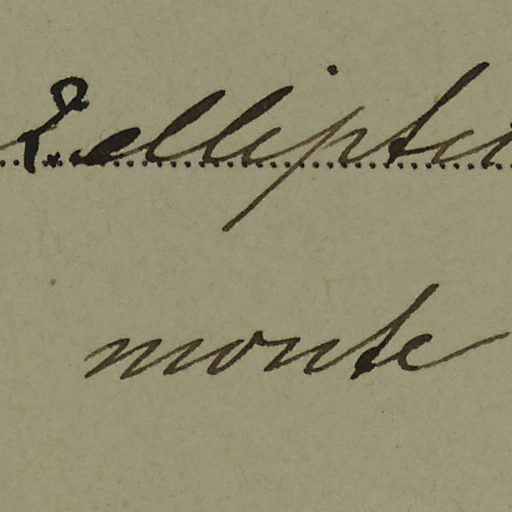 & elliptei
monte